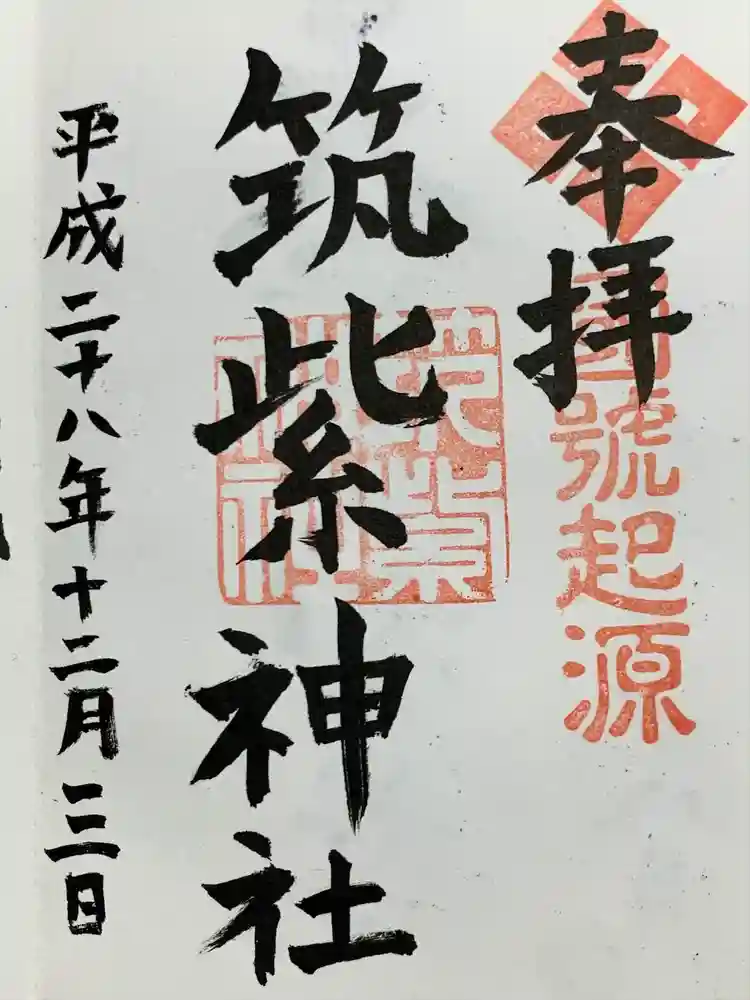 奉拝
國號起源
筑紫神社
筑紫神社
平成二十八年十二月三日